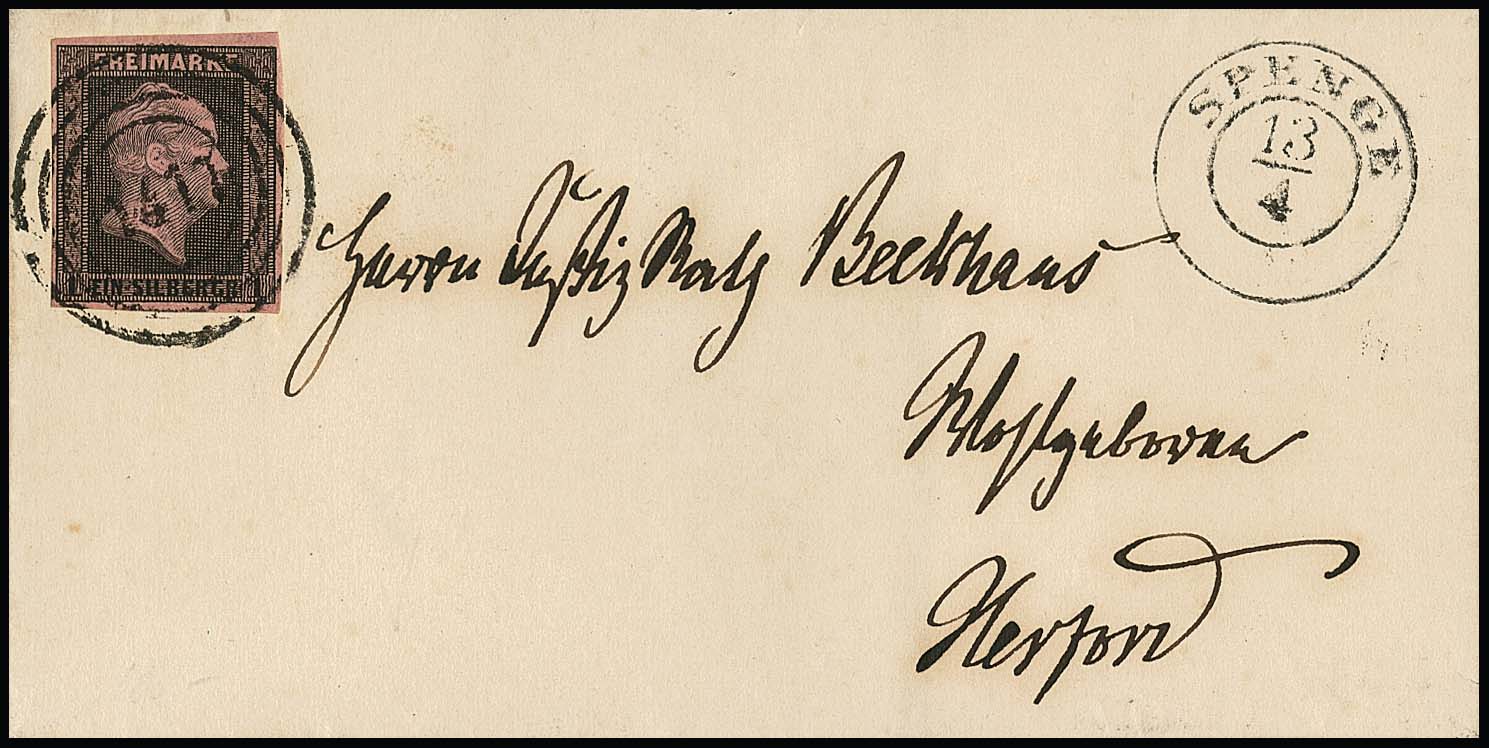 FREIMARKE
1 EIN SILBERGR. 1
SPENGE
13
4
Herrn Justiz Rath Beckhaus
Wohlgeboren
Herford